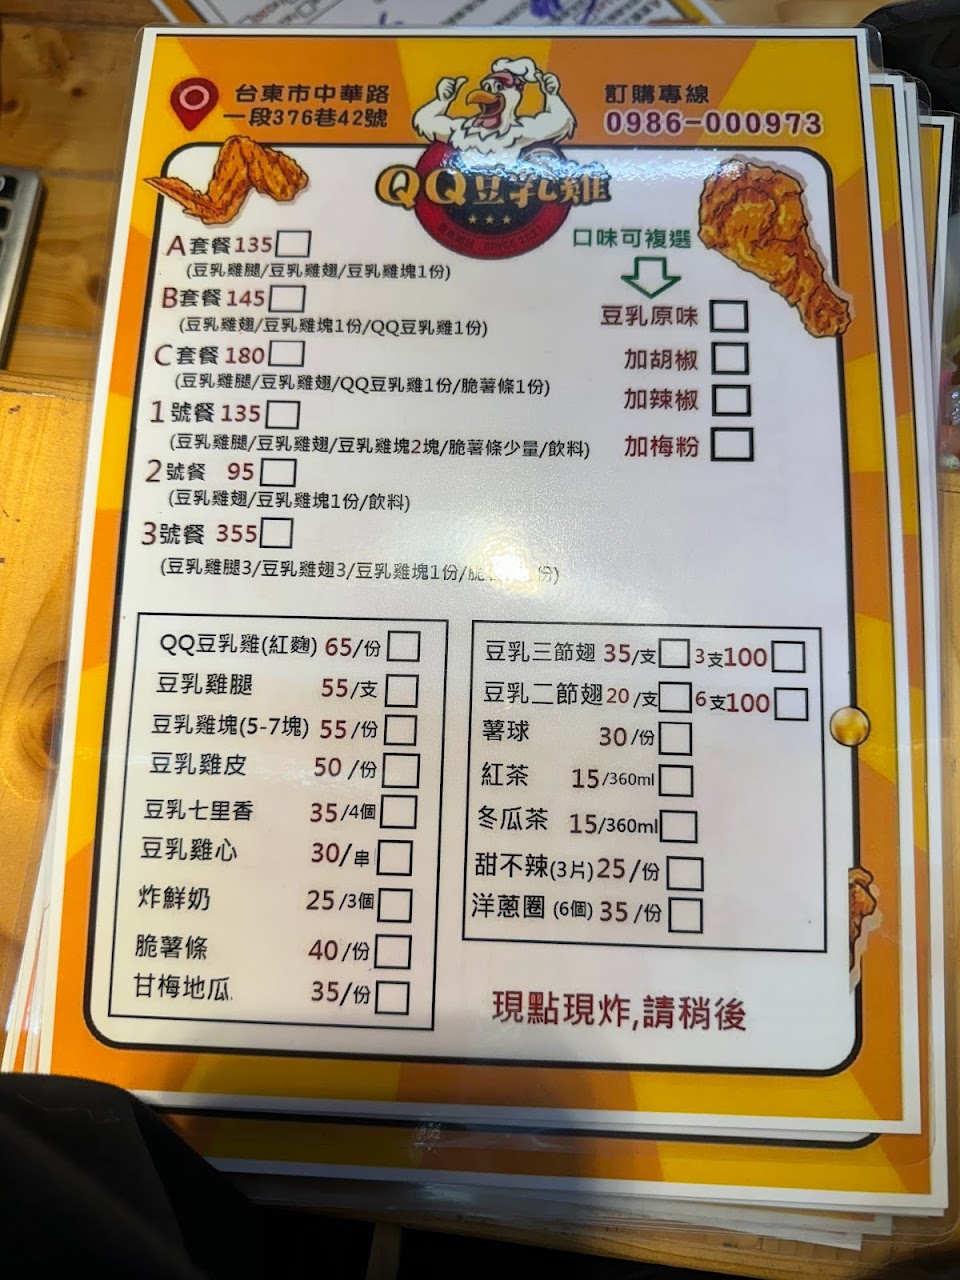 台東市中華路
一段376巷42號
訂購專線
0986-000973
QQ豆乳雞
口味可複選
豆乳原味
加胡椒
加辣椒
加梅粉
A套餐135
(豆乳雞腿/豆乳雞翅/豆乳雞塊1份)
B套餐145
(豆乳雞翅/豆乳雞塊1份/QQ豆乳雞1份)
C套餐180
(豆乳雞腿/豆乳雞翅/QQ豆乳雞1份/脆薯條1份)
1號餐135
(豆乳雞腿/豆乳雞翅/豆乳雞塊2塊/脆薯條少量/飲料)
2號餐 95
(豆乳雞翅/豆乳雞塊1份/飲料)
3號餐 355
(豆乳雞腿3/豆乳雞翅3/豆乳雞塊1份/脆 份)
QQ豆乳雞(紅麴) 65/份
豆乳雞腿 55/支
豆乳雞塊(5-7塊) 55/份
豆乳雞皮 50/份
豆乳七里香 35/4個
豆乳雞心 30/串
炸鮮奶 25/3個
脆薯條 40/份
甘梅地瓜 35/份
豆乳三節翅 35/支 3支100
豆乳二節翅 20/支 6支100
薯球 30/份
紅茶 15/360ml
冬瓜茶 15/360ml
甜不辣(3片) 25/份
洋蔥圈 (6個) 35/份
現點現炸,請稍後